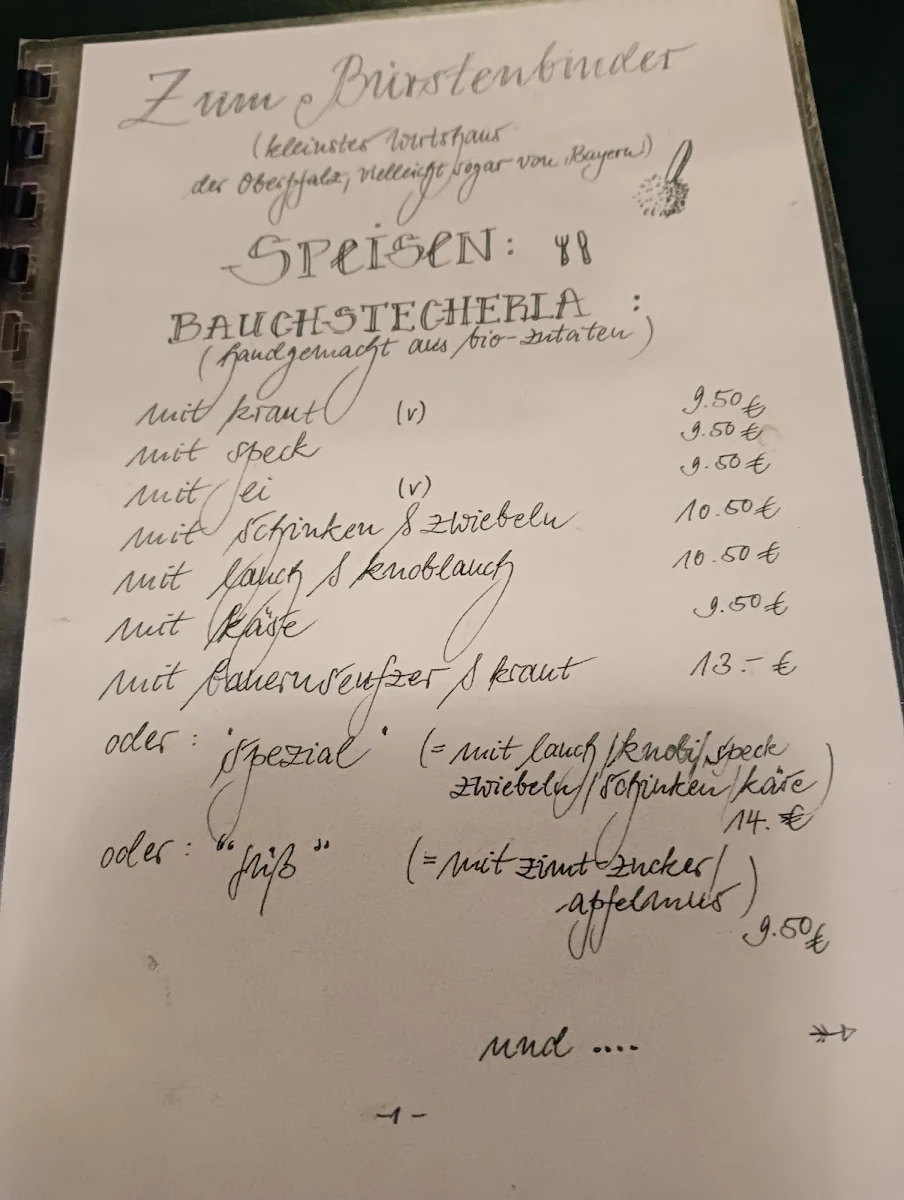 Zum Bürstenbinder
(kleinstes Wirtshaus
der Oberpfalz, vielleicht sogar von Bayern)
SPEISEN:
BAUCHSTECHERLA :
(handgemacht aus bio-zutaten)
mit kraut (v) 9.50 €
mit speck 9.50 €
mit ei (v) 9.50 €
mit schinken & zwiebeln 10.50 €
mit lauch & knoblauch 10.50 €
mit käse 9.50 €
mit bauernseufzer & kraut 13.- €
oder: "spezial" (= mit lauch/knobi/speck
zwiebeln/schinken/käse)
14. €
oder: "süß" (= mit zimt-zucker/
apfelmus)
9.50 €
und ....
-1-